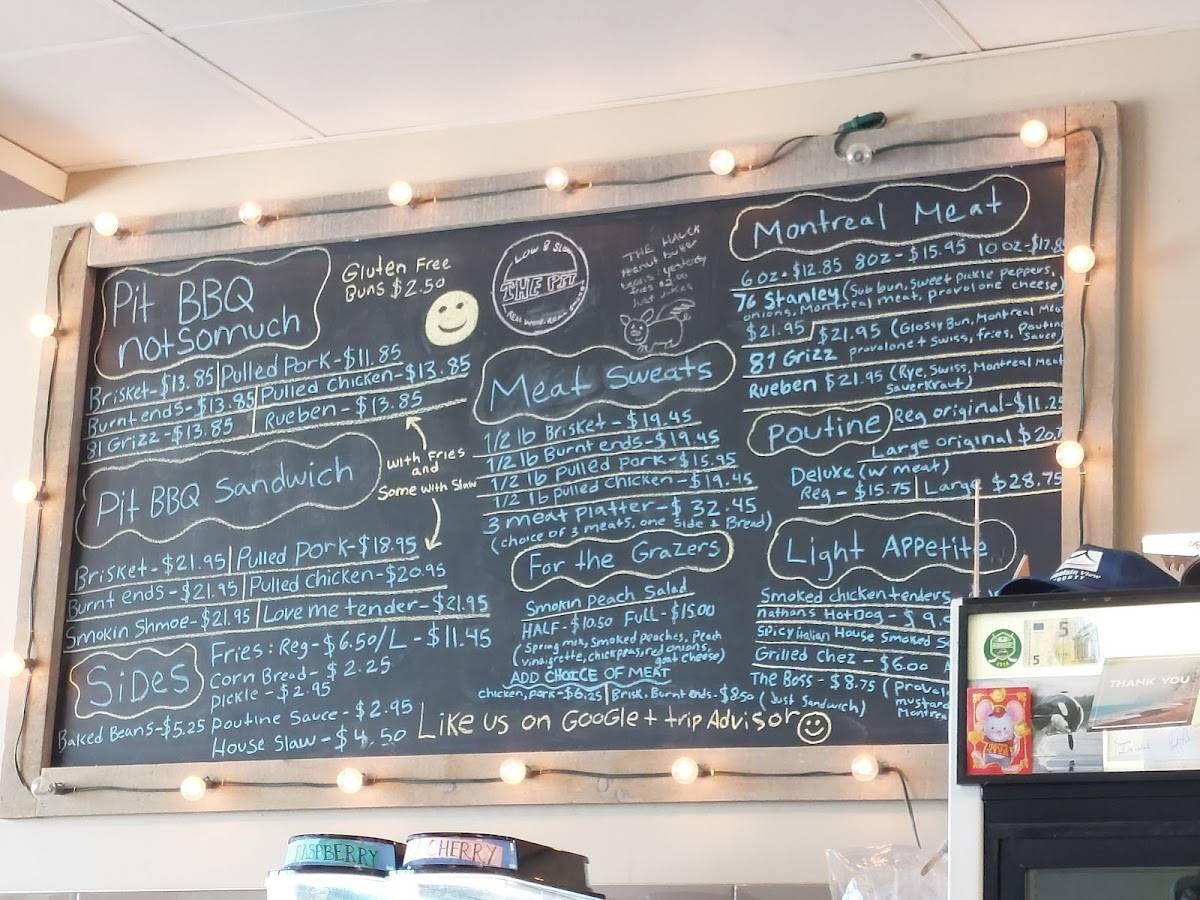 Pit BBQ
notSomuch
Gluten Free
Buns $2.50
Brisket-$13.85 Pulled Pork-$11.85
Burnt ends-$13.85 Pulled Chicken-$13.85
81 Grizz-$13.85 Rueben-$13.85
with Fries
and
Some with Slaw
Pit BBQ Sandwich
Brisket-$21.95 Pulled Pork-$18.95
Burnt ends-$21.95 Pulled Chicken-$20.95
Smokin Shmoe-$21.95 Love me tender-$21.95
Sides
Fries: Reg-$6.50/L-$11.45
Corn Bread-$2.25
pickle-$2.95
Baked Beans-$5.25 poutine Sauce-$2.95
House Slaw-$4.50
LOW & SLOW
THE PIT
THE HAWK
Peanut butter
yesterday
Meat Sweats
1/2 lb Brisket-$19.45
1/2 lb Burnt ends-$19.45
1/2 lb Pulled pork-$15.95
1/2 lb pulled chicken-$19.45
3 meat platter-$32.45
(choice of 3 meats, one side + Bread)
For the Grazers
Smokin Peach Salad
HALF-$10.50 Full-$15.00
(Spring mix, Smoked peaches, Peach
vinaigrette, chickpeas, red onions,
goat cheese)
ADD CHOICE OF MEAT
chicken, pork-$6.25 Brisk, Burnt ends-$8.50
Like us on GOOGLE+ trip Advisor
Montreal Meat
6oz-$12.85 8oz-$15.95 10oz-$17.8
76 Stanley (Sub bun, Sweet pickle peppers,
onions, Montreal meat, provalone cheese)
$21.95 $21.95 (Glossy Bun, Montreal Meat
81 Grizz provalone + Swiss, fries, Poutine
Sauce)
Rueben $21.95 (Rye, Swiss, Montreal meat
Sauerkraut)
Poutine Reg original-$11.25
Large original $20.7
Deluxe (w meat)
Reg-$15.75 Large $28.75
Light Appetite
Smoked chicken tenders
nathans HotDog-$9.
Spicy Italian House Smoked S
Grilled Chez-$6.00
The Boss-$8.75 (proval
(Just Sandwich) mustard
Montrea
Mountain View
COUNTY
5
THANK YOU
RASPBERRY
CHERRY